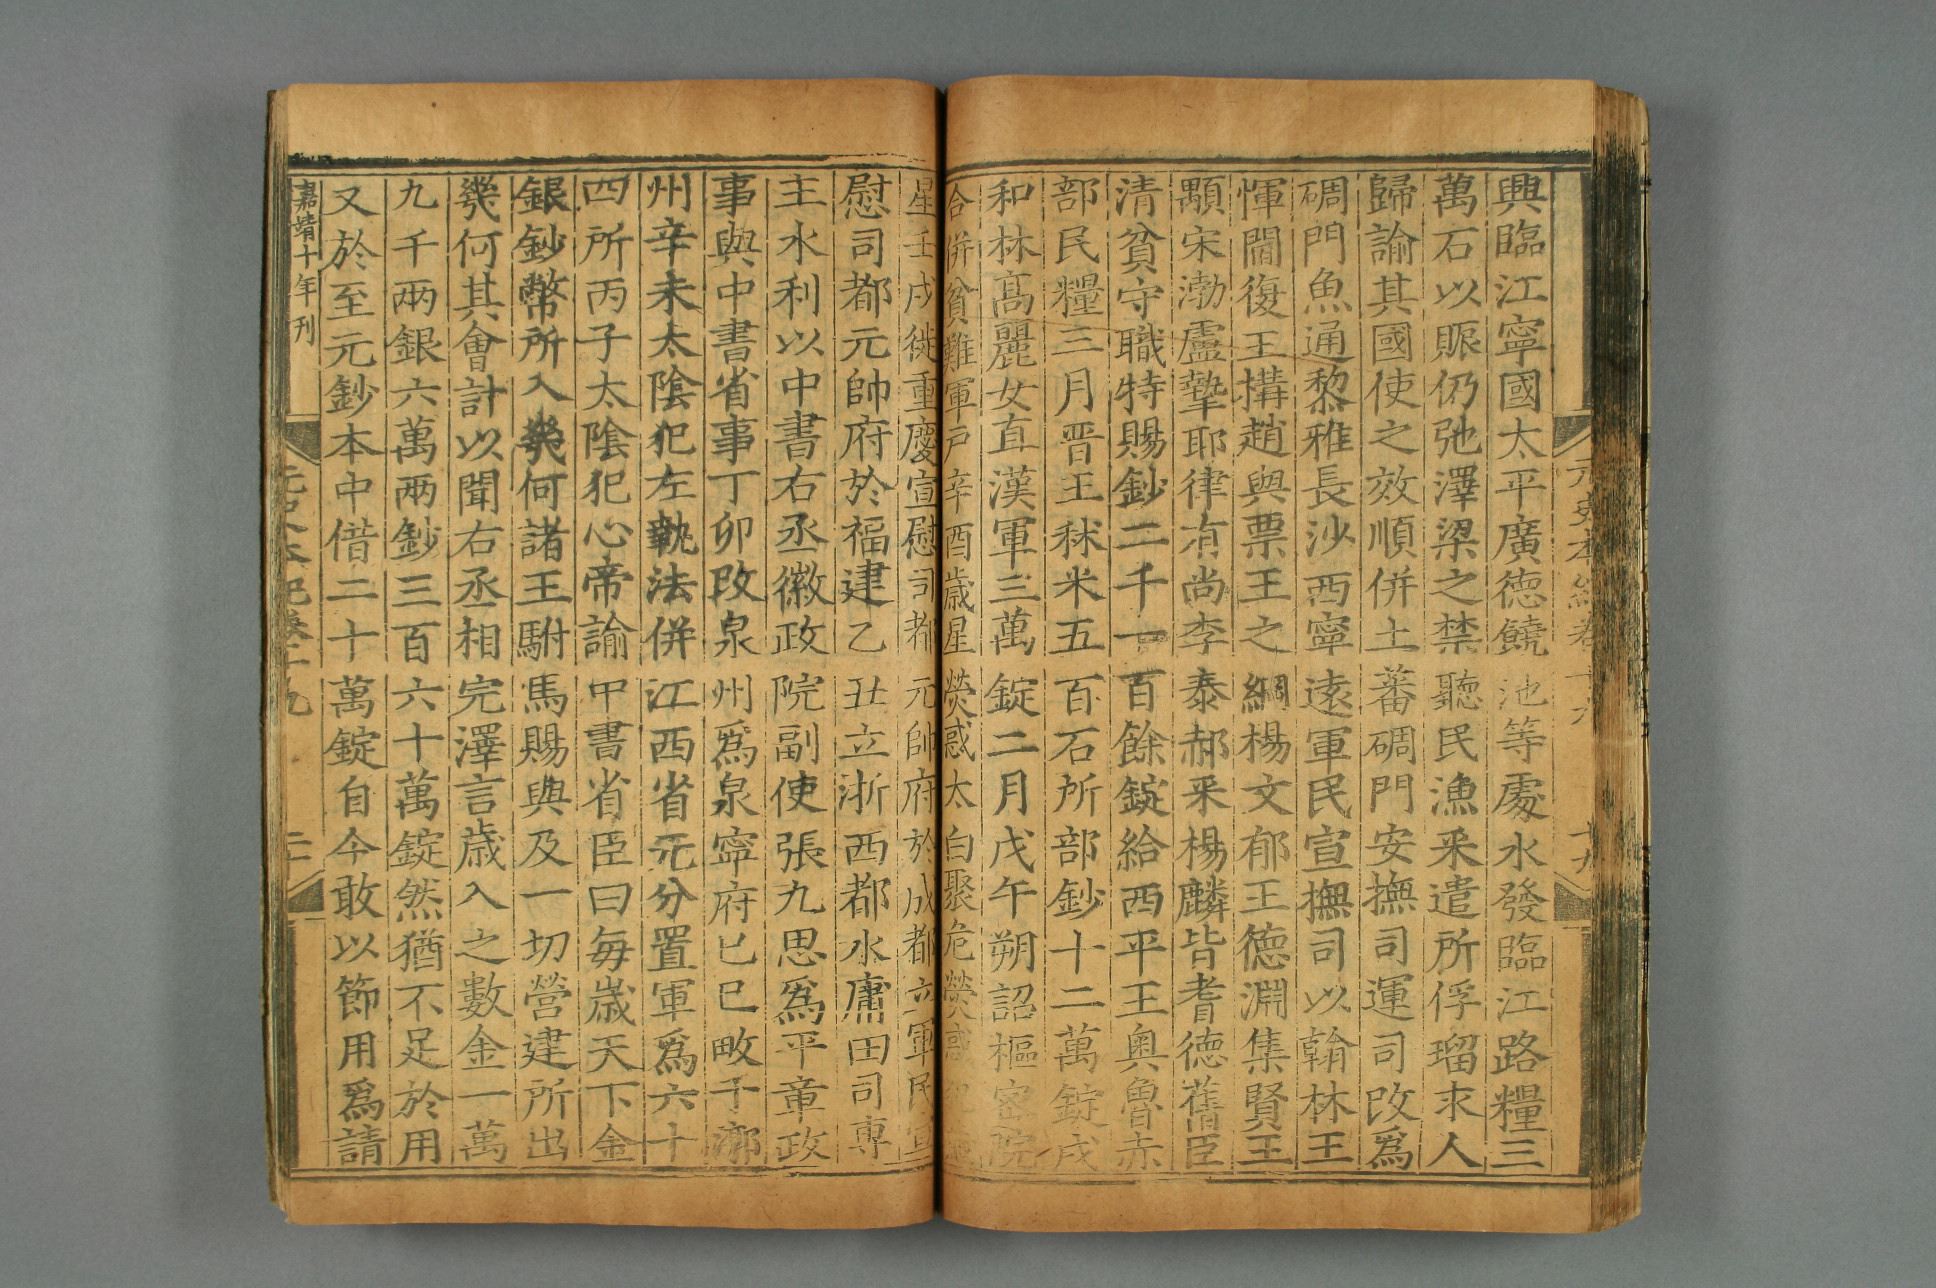 興臨江寧國太平廣德饒池等處水發臨江路糧三
萬石以賑仍弛澤梁之禁聽民漁采遣所俘琉求人
歸諭其國使之效順併土蕃碉門安撫司運司改爲
碉門魚通黎雅長沙西寧遠軍民宣撫司以翰林王
惲閻復王搆趙與票王之綱楊文郁王德淵集賢王
顒宋渤盧摯耶律有尚李泰郝采楊麟皆耆德舊臣
清貧守職特賜鈔二千一百餘錠給西平王奥魯赤
部民糧三月晋王秣米五百石所部鈔十二萬錠戍
和林高麗女直漢軍三萬錠二月戊午朔詔樞密院
合併貧難軍戶辛酉歲星熒惑太白聚危熒惑犯歲
星壬戌徙重慶宣慰司都元帥府於成都立軍民宣
慰司都元帥府於福建乙丑立浙西都水庸田司專
主水利以中書右丞徽政院副使張九思爲平章政
事與中書省事丁卯改泉州爲泉寧府己巳畋于漷
州辛未太陰犯左執法併江西省元分置軍爲六十
四所丙子太陰犯心帝諭中書省臣曰每歲天下金
銀鈔幣所入幾何諸王駙馬賜與及一切營建所出
幾何其會計以聞右丞相完澤言歲入之數金一萬
九千兩銀六萬兩鈔三百六十萬錠然猶不足於用
又於至元鈔本中借二十萬錠自今敢以節用爲請
嘉靖十年刊